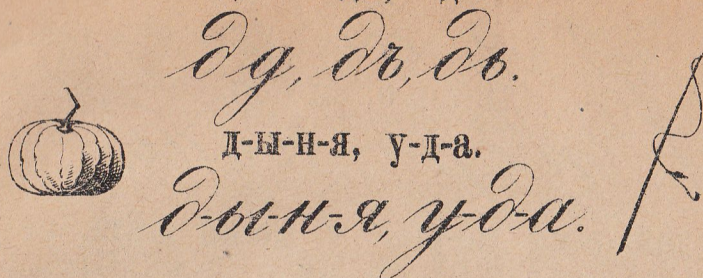 дд, дъ, дь.
д-ы-н-я, у-д-а.
д-ы-н-я, у-д-а.